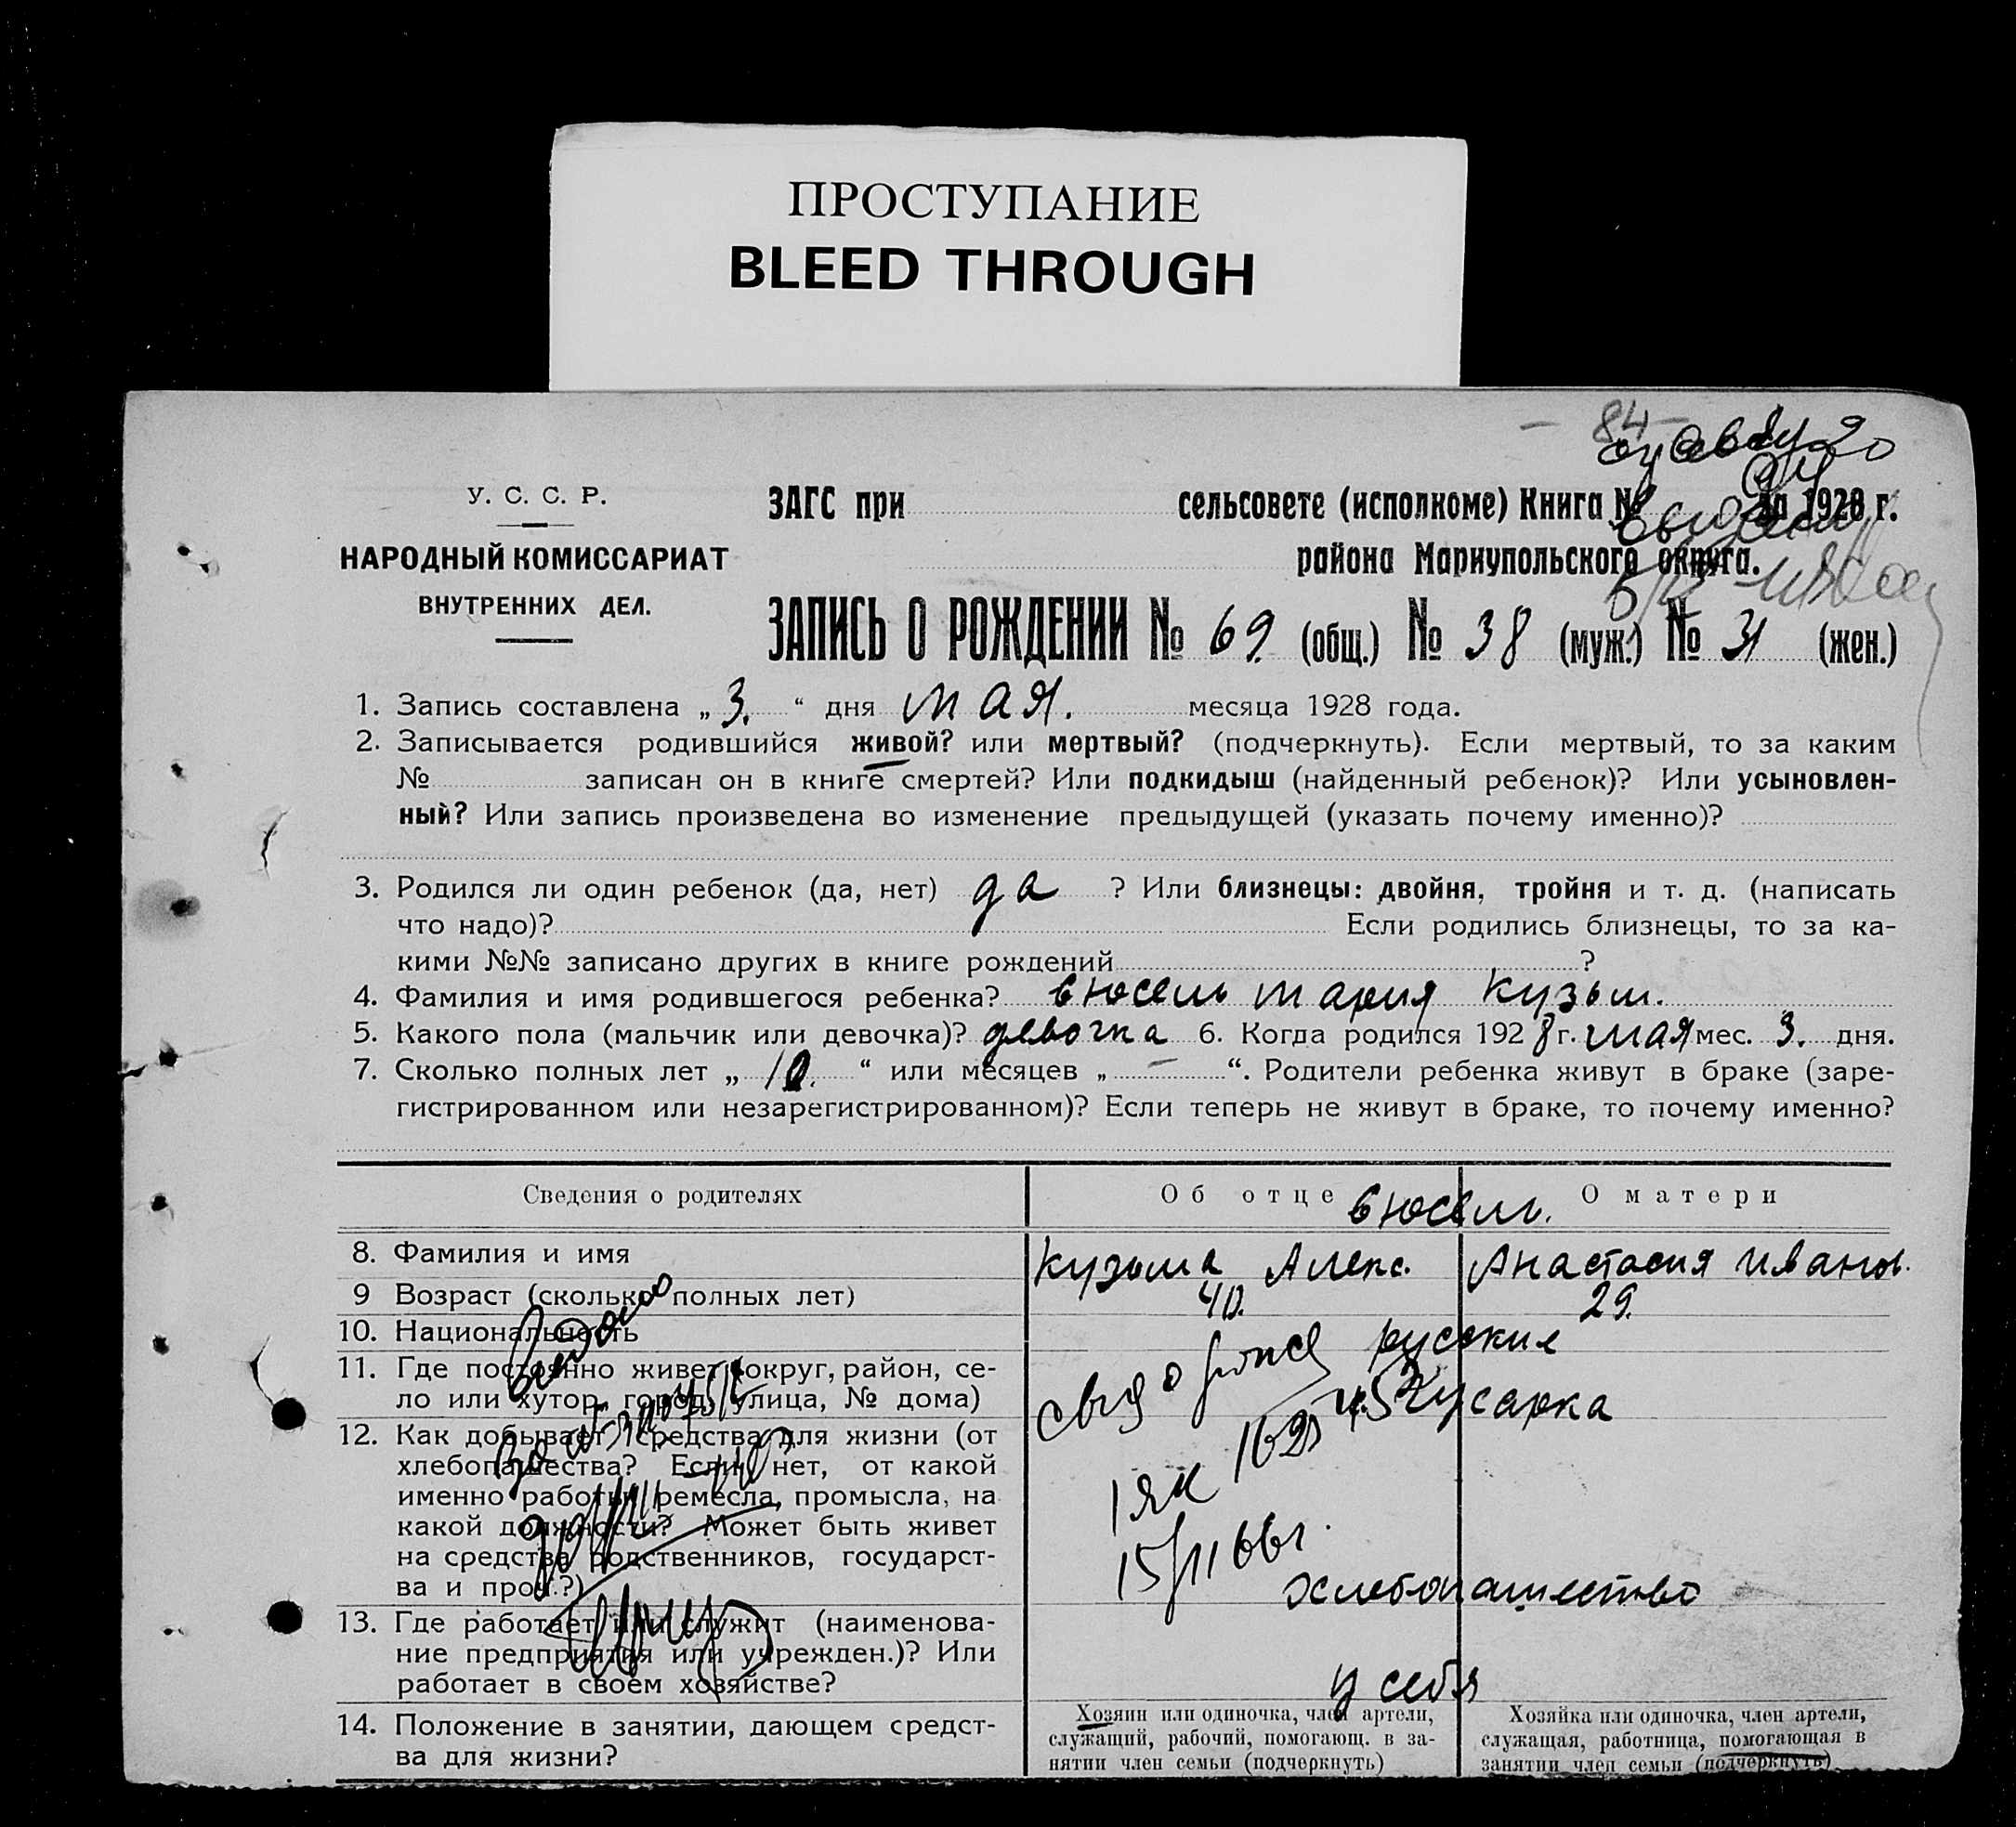 ПРОСТУПАНИЕ
BLEED THROUGH
- 84 -
У. С. С. Р.
НАРОДНЫЙ КОМИССАРИАТ
ВНУТРЕННИХ ДЕЛ.
ЗАГС при сельсовете (исполкоме) Книга № за 1928 г.
района Мариупольского округа.
ЗАПИСЬ О РОЖДЕНИИ № 69. (общ.) № 38 (муж.) № 31 (жен.)
1. Запись составлена „ 3. “ дня мая. месяца 1928 года.
2. Записывается родившийся живой? или мертвый? (подчеркнуть). Если мертвый, то за каким
№ записан он в книге смертей? Или подкидыш (найденный ребенок)? Или усыновлен-
ный? Или запись произведена во изменение предыдущей (указать почему именно)?
3. Родился ли один ребенок (да, нет) да ? Или близнецы: двойня, тройня и т. д. (написать
что надо)? Если родились близнецы, то за ка-
кими №№ записано других в книге рождений ?
4. Фамилия и имя родившегося ребенка? Мария Кузьм.
5. Какого пола (мальчик или девочка)? девочка 6. Когда родился 1928 г. мая мес. 3. дня.
7. Сколько полных лет „ 10. “ или месяцев „ — “. Родители ребенка живут в браке (заре-
гистрированном или незарегистрированном)? Если теперь не живут в браке, то почему именно?
Сведения о родителях Об отце О матери
8. Фамилия и имя Кузьма Алекс. Анастасия Иванов.
9 Возраст (сколько полных лет) 40. 29.
10. Национальность русские
11. Где постоянно живет (округ, район, се-
ло или хутор, город, улица, № дома)
12. Как добывает средства для жизни (от
хлебопашества? Если нет, от какой
именно работы, ремесла, промысла, на
какой должности? Может быть живет
на средства родственников, государст-
ва и проч.?) хлебопашество
15/II 66г.
13. Где работает или служит (наименова-
ние предприятия или учрежден.)? Или
работает в своем хозяйстве? у себя
14. Положение в занятии, дающем средст-
ва для жизни?
Хозяин или одиночка, член артели,
служащий, рабочий, помогающ. в за-
нятии член семьи (подчеркнуть)
Хозяйка или одиночка, член артели,
служащая, работница, помогающая в
занятии член семьи (подчеркнуть)